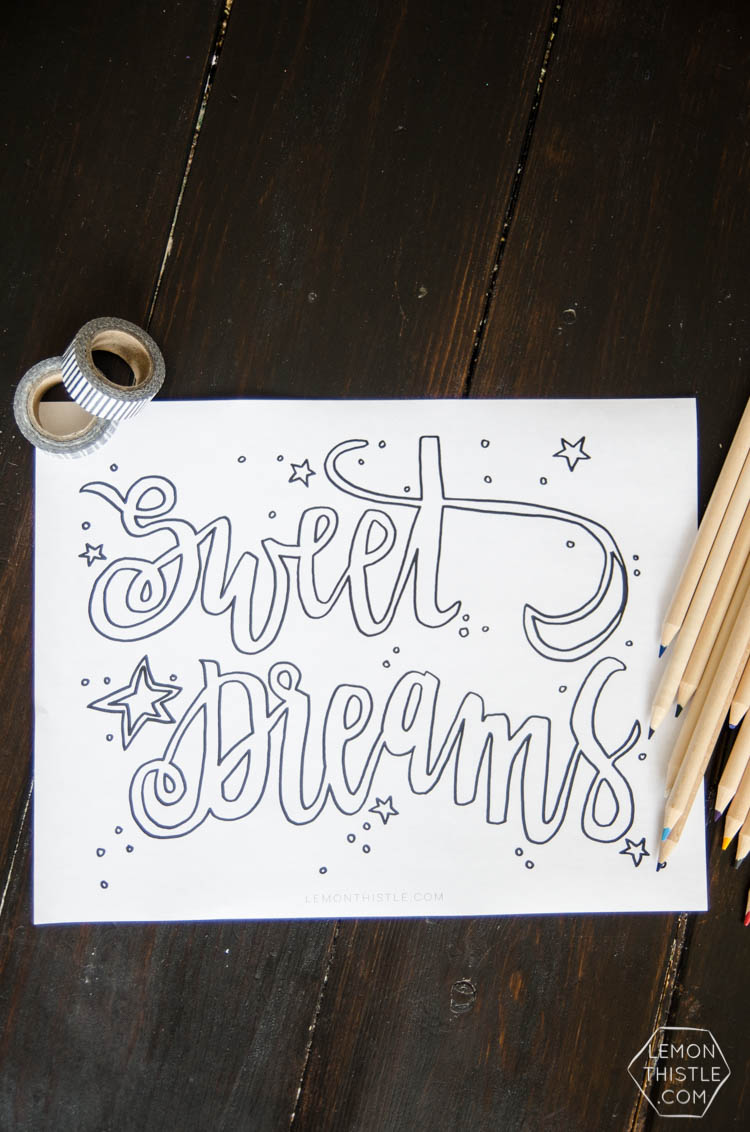 Sweet
Dreams
LEMONTHISTLE.COM
LEMON
THISTLE
.COM